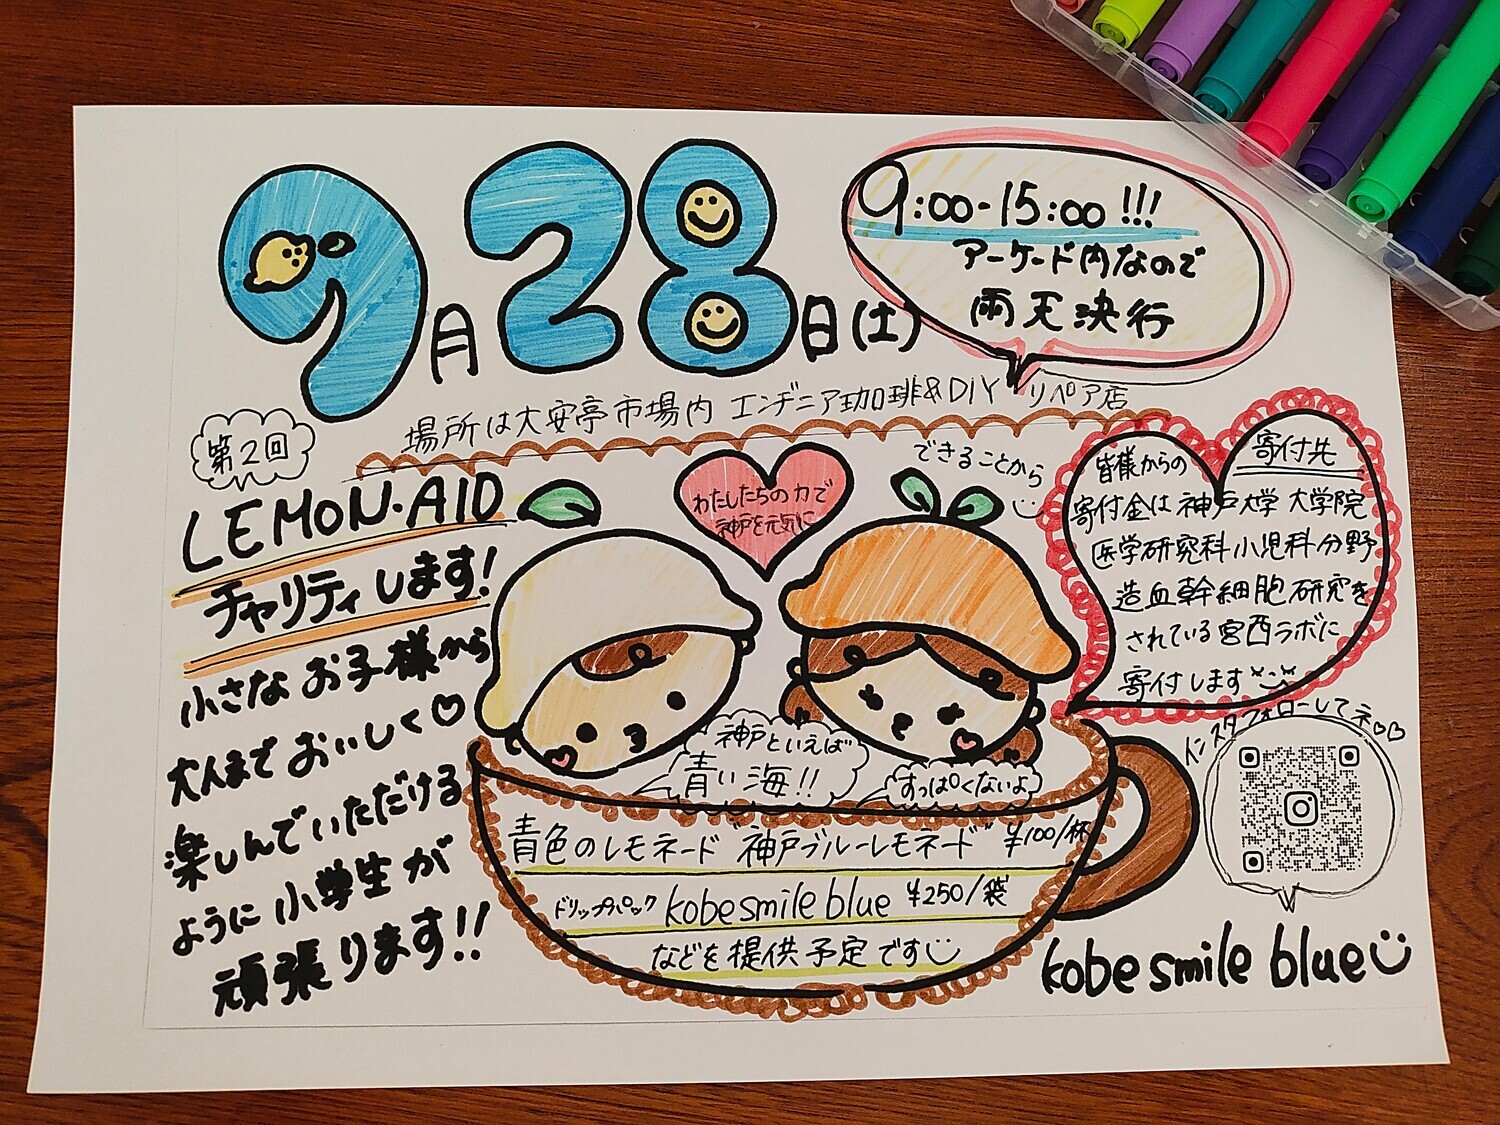 9月28日(土)
9:00-15:00!!!
アーケード内なので
雨天決行
場所は大安亭市場内 エンヂニア珈琲&DIYリペア店
第2回
LEMON・AID
チャリティします!
小さなお子様から
大人までおいしく♡
楽しんでいただける
ように小学生が
頑張ります!!
わたしたちの力で
神戸を元気に
できることから
寄付先
皆様からの
寄付金は神戸大学大学院
医学研究科小児科分野
造血幹細胞研究を
されている宮西ラボに
寄付します
神戸といえば
青い海!!
すっぱくないよ
青色のレモネード"神戸ブルーレモネード" ¥100/杯
ドリップパック kobe smile blue ¥250/袋
などを提供予定です
インスタフォローしてネ♡♡
kobe smile blue